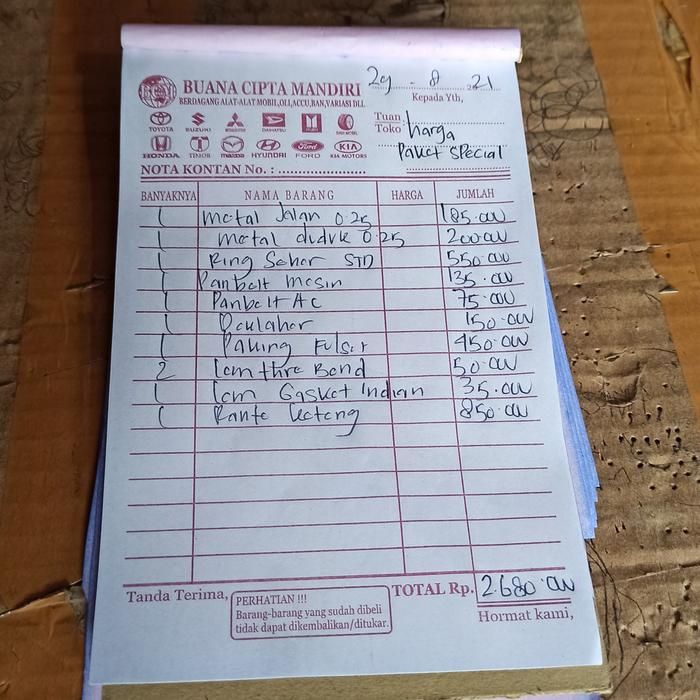 BUANA CIPTA MANDIRI
BERDAGANG ALAT-ALAT MOBIL,OLI,ACCU,BAN,VARIASI DLL.
29 - 8 - 2021
Kepada Yth,
TOYOTA SUZUKI MITSUBISHI DAIHATSU ISUZU
HONDA TIMOR mazda HYUNDAI FORD KIA MOTORS
Tuan
Toko harga
Paket Special
NOTA KONTAN No. :
BANYAKNYA NAMA BARANG HARGA JUMLAH
1 Metal Jalan 0.25 185.000
1 metal duduk 0.25 200.000
1 Ring Seher STD 550.000
1 Panbelt Mesin 135.000
1 Panbelt AC 75.000
1 150.000
1 Paking Fulset 450.000
2 Lem thre Bond 50.000
1 Lem Gasket Indian 35.000
1 Rante Keteng 850.000
Tanda Terima,
PERHATIAN !!!
Barang-barang yang sudah dibeli
tidak dapat dikembalikan/ditukar.
TOTAL Rp. 2.680.000
Hormat kami,